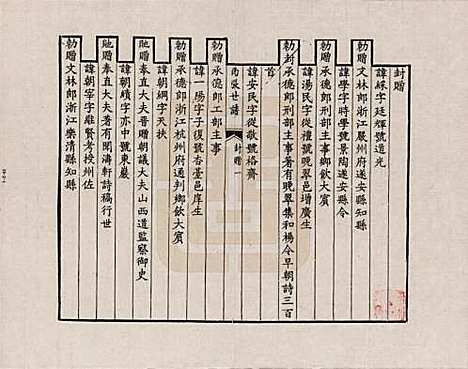 封贈
諱綵字廷輝號道光
勅贈文林郎浙江嚴州府遂安縣知縣
諱學字時學號景陶遂安縣令
勅贈承德郎刑部主事鄉飲大賓
諱湯民字從禮號晚翠邑增廣生
勅封承德郎刑部主事著有晚翠集和楊令早朝詩三百
首
諱安民字從敬號格齋
西張世譜
封贈一
勅贈承德郎工部主事
諱一陽字子復號杏臺邑庠生
勅贈承德郎浙江杭州府通判鄉飲大賓
諱朝綱字天扶
馳贈奉直大夫晉贈朝議大夫山西道監察御史
諱朝績字亦中號東巖
馳贈奉直大夫著有聞濤軒詩稿行世
諱朝宰字䧺賢考授州佐
勅贈文林郎浙江樂清縣知縣